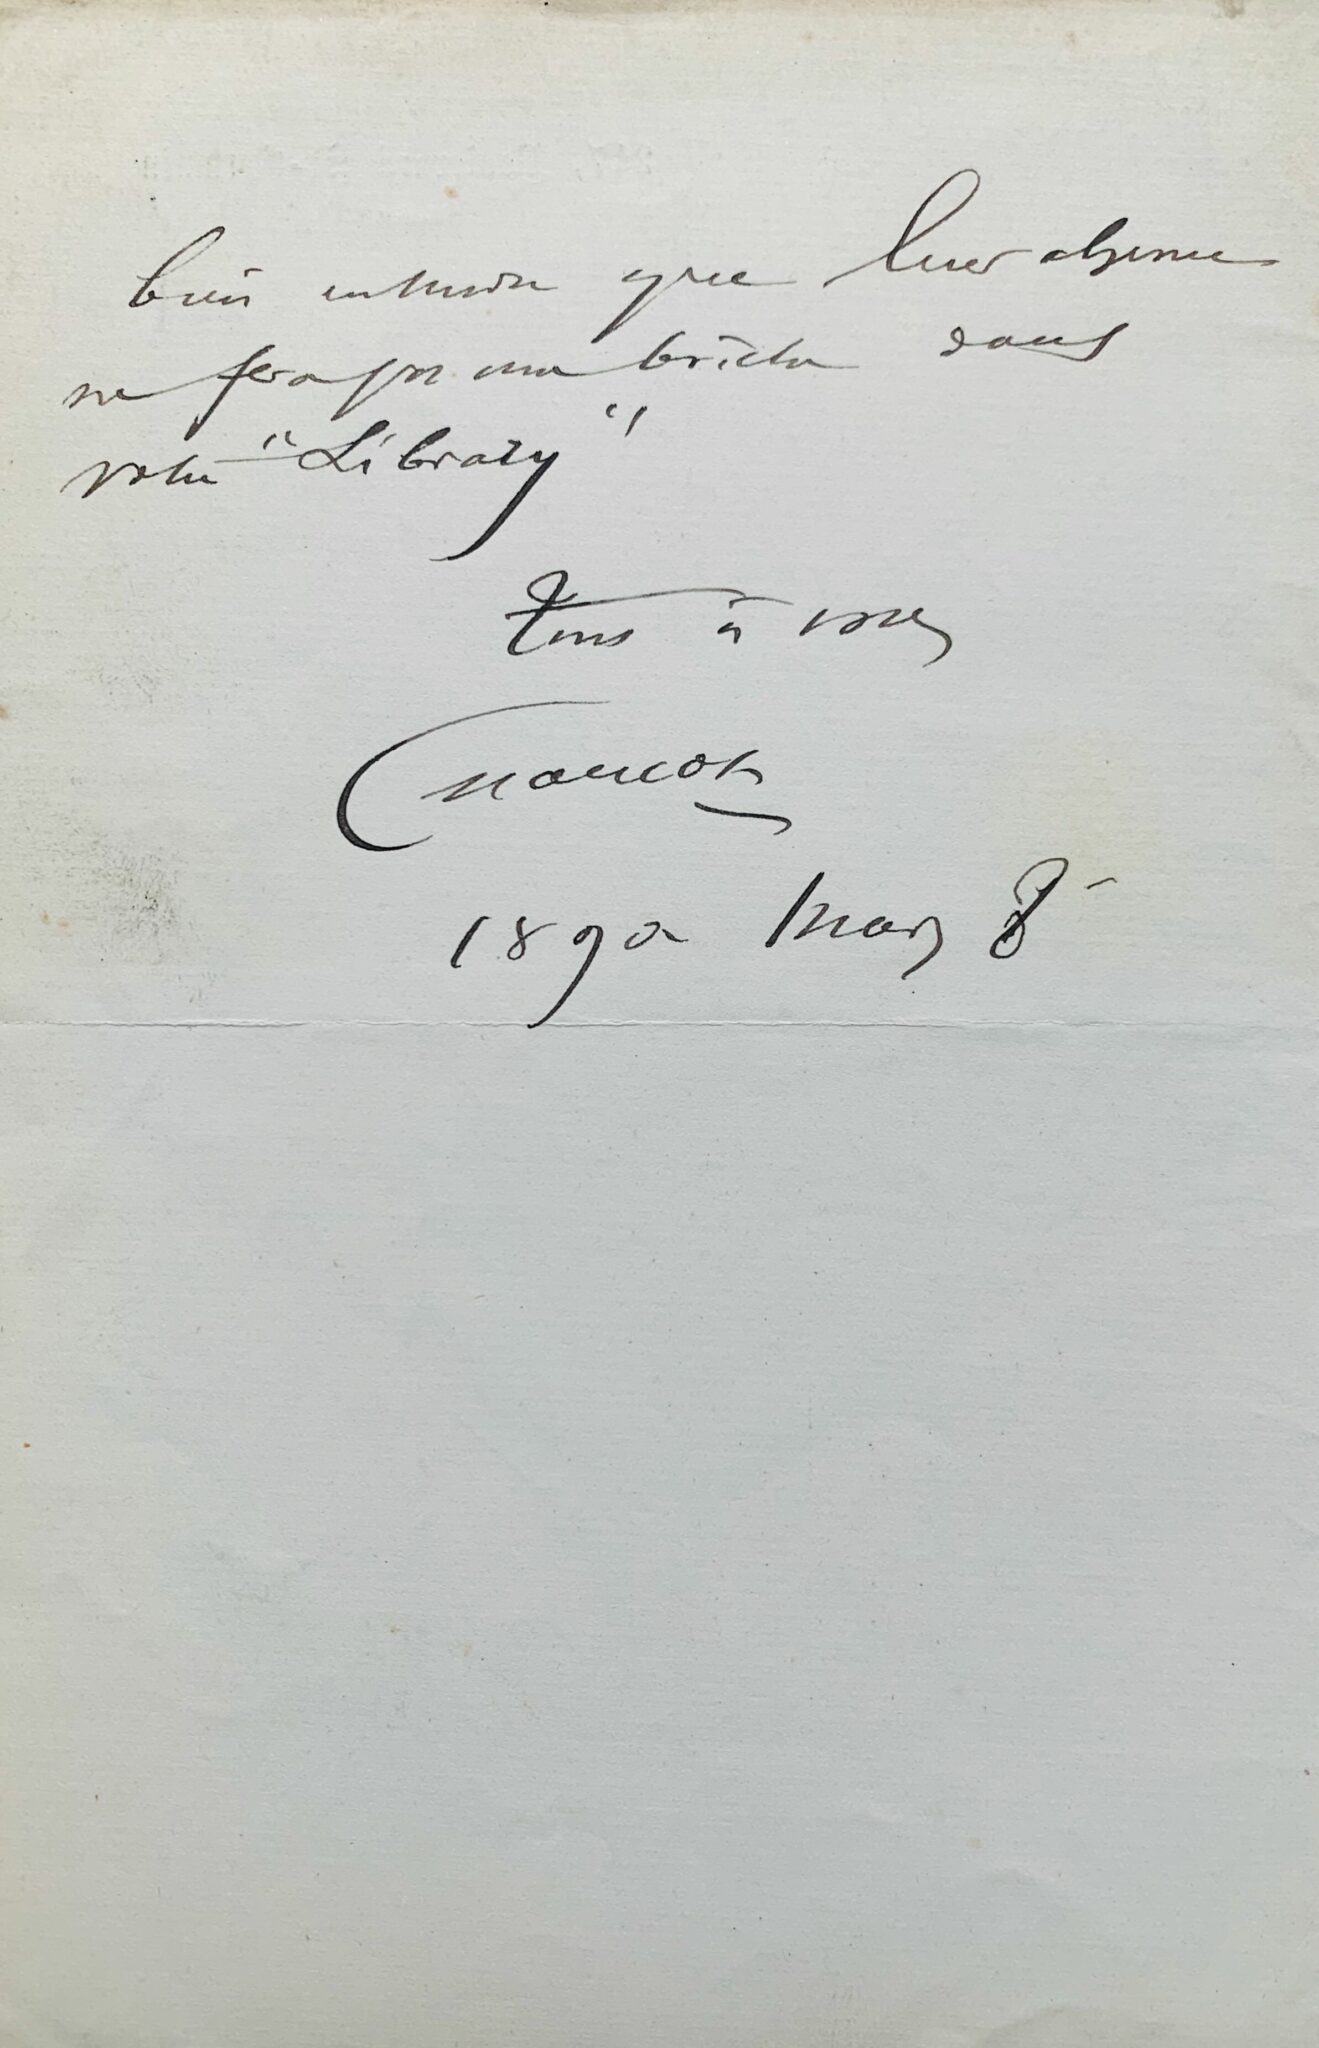 bien entendu que leur absence
ne fera pas une brèche dans
votre "Library"
Tout à vous
1890 May 8